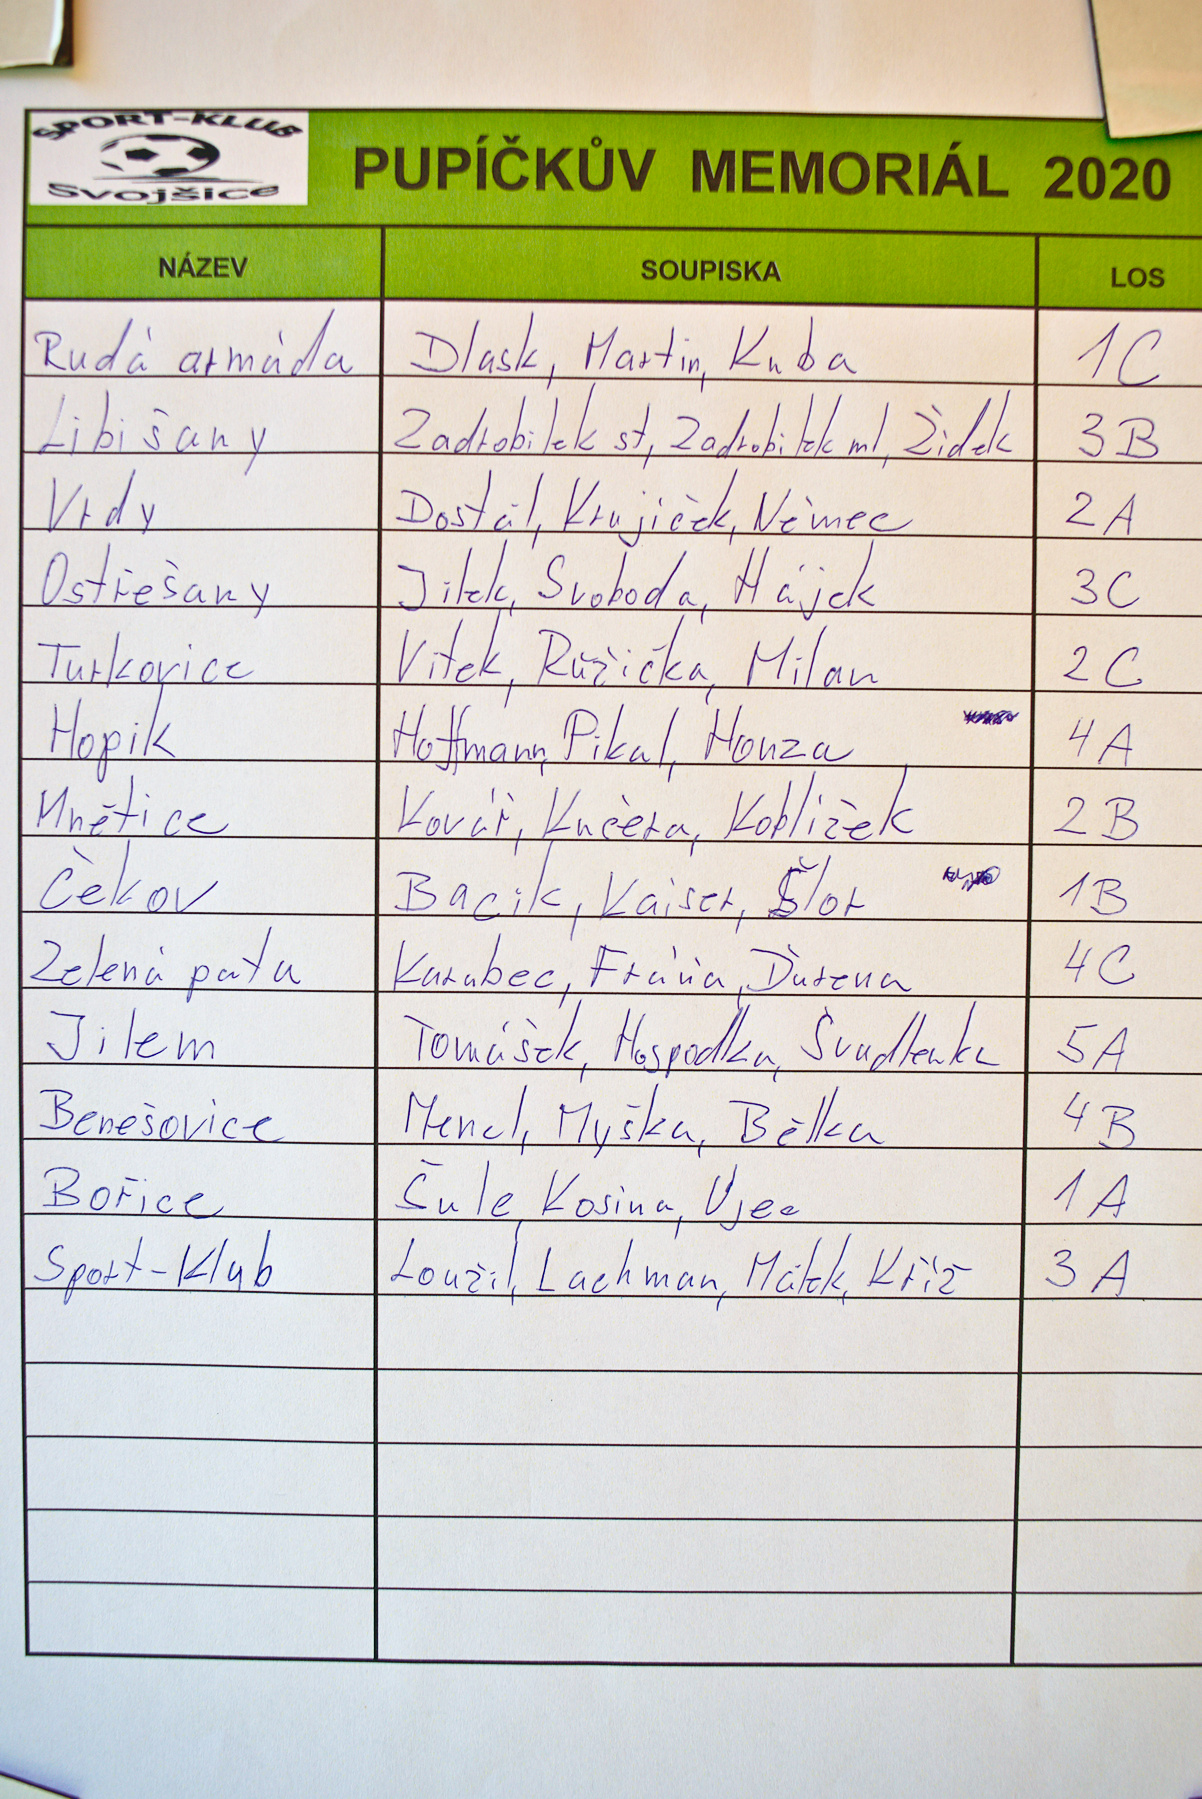 SPORT-KLUB
Svojšice
PUPÍČKŮV MEMORIÁL 2020
NÁZEV SOUPISKA LOS
Rudá armáda Dlask, Martin, Kuba 1C
Libišany Zadrobilek st, Zadrobilek ml, Židek 3B
Vrdy Dostál, Krujíček, Němec 2A
Ostřešany Jilek, Svoboda, Hájek 3C
Turkovice Vitek, Růžička, Milan 2C
Hopik Hoffmann, Pikal, Honza 4A
Mnětice Kovář, Kučera, Koblížek 2B
Čekov Bacik, Kaiser, Šlor 1B
Zelená pata Karabec, Fráňa, Ďurena 4C
Jilem Tomášek, Hospodka, Švadlenka 5A
Benešovice Mencl, Myška, Bělka 4B
Bořice Šule, Kosina, Ujec 1A
Sport-Klub Loužil, Lachman, Málek, Kříž 3A